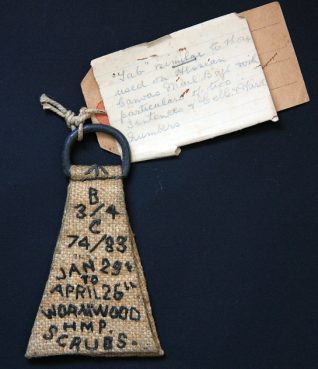 "Tab" similar to those
used on Hessian
Canvas Mail Bags with
particulars of two
Sentences & Cell &
Numbers
B
3/4
C
74/83
JAN 29th
TO
APRIL 26th
WORMWOOD
HMP.
SCRUBS.